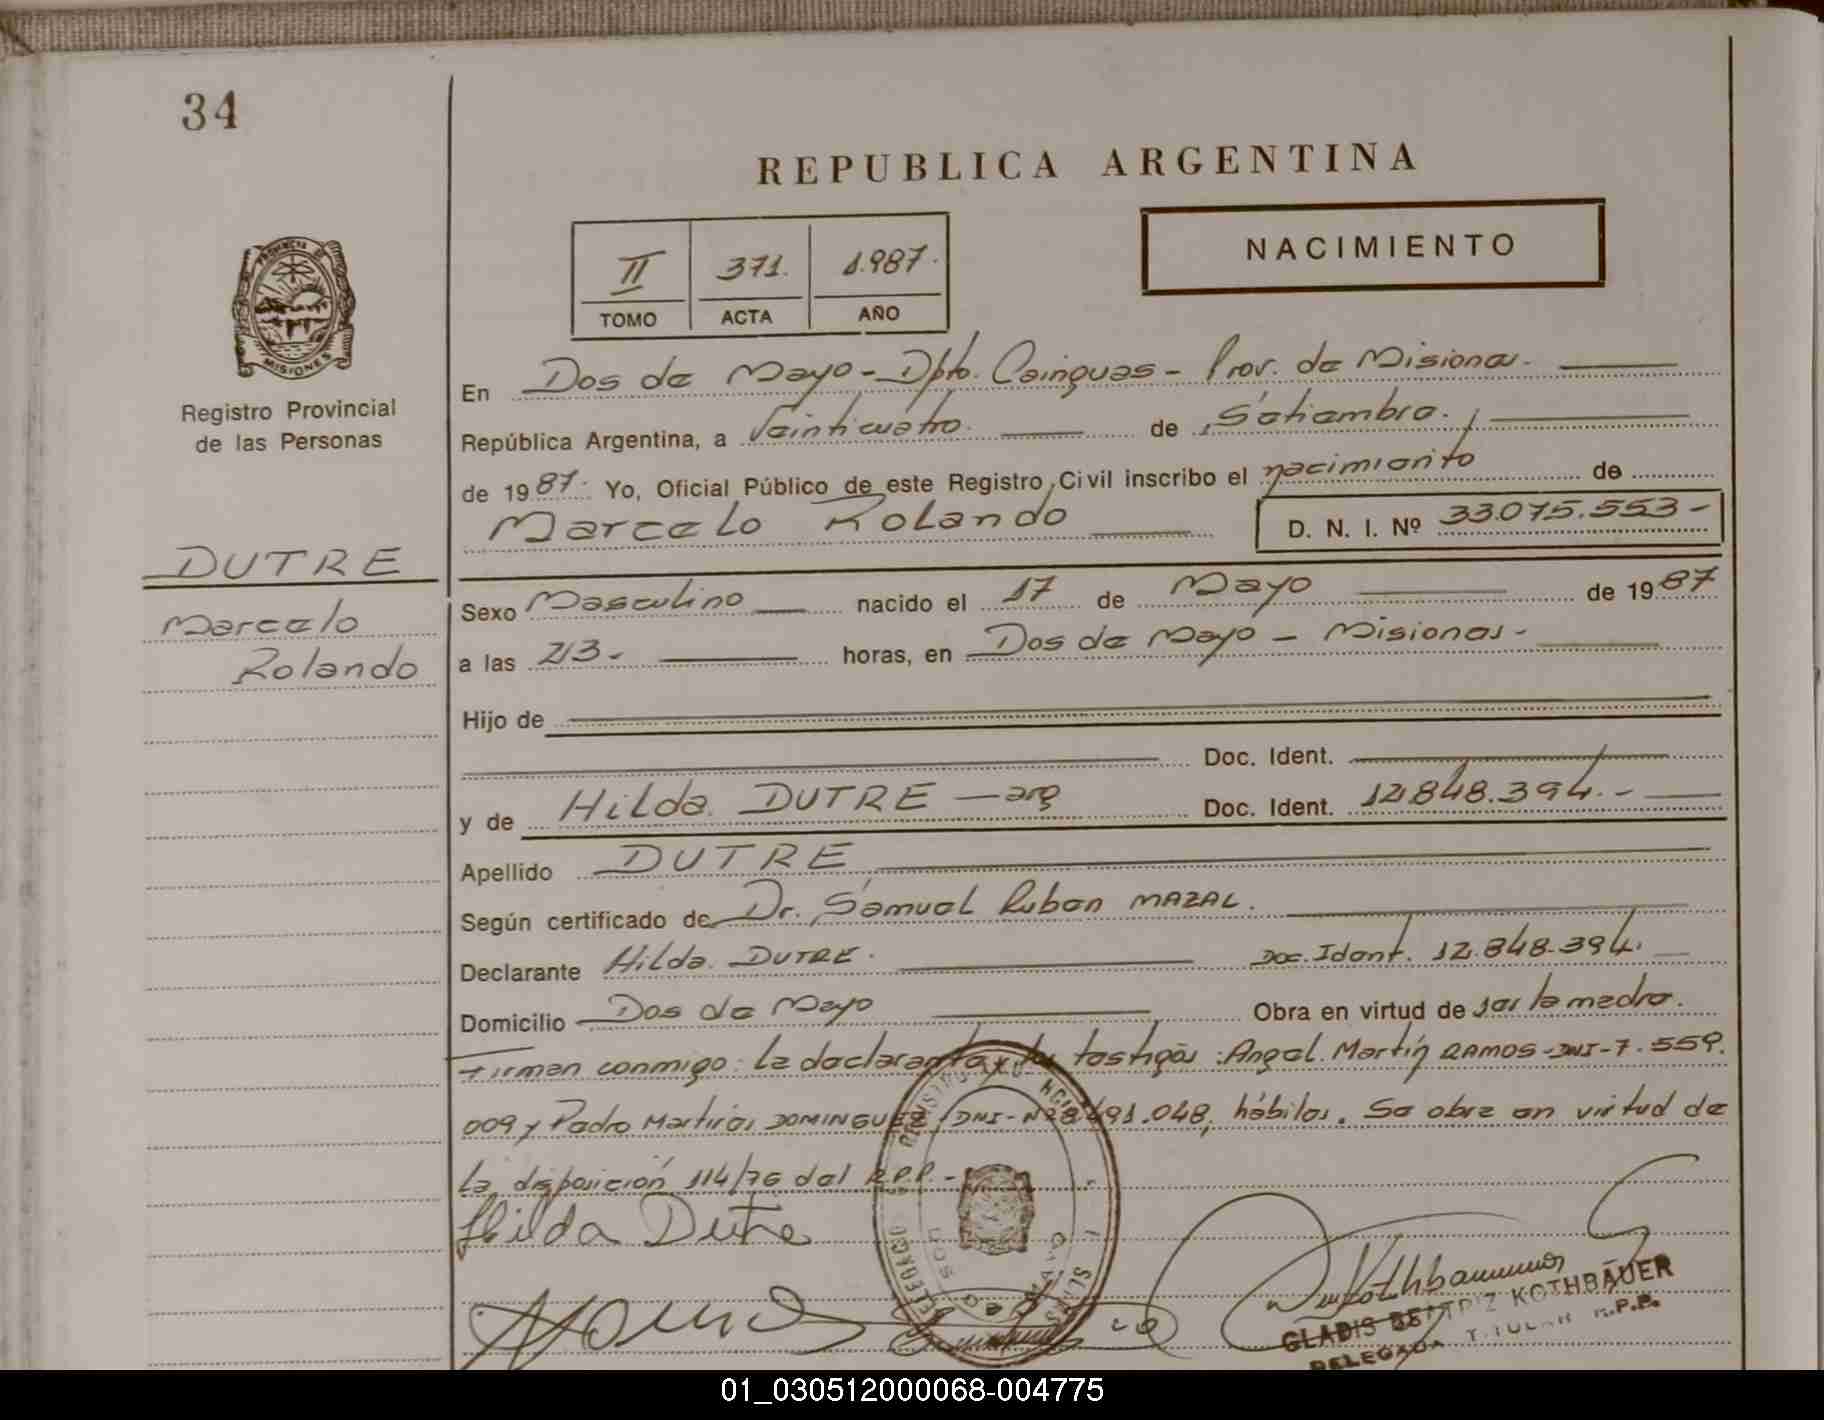 34
REPUBLICA ARGENTINA
NACIMIENTO
II 371. 1.987.
TOMO ACTA AÑO
PROVINCIA DE
MISIONES
Registro Provincial
de las Personas
DUTRE
Marcelo
Rolando
En Dos de Mayo - Dpto. Cainguas - Prov. de Misiones.
República Argentina, a Veinticuatro. de Setiembre.
de 1987. Yo, Oficial Público de este Registro Civil inscribo el nacimiento de
Marcelo Rolando D. N. I. Nº 33.075.553-
Sexo Masculino nacido el 17 de Mayo de 1987
a las 23.- horas, en Dos de Mayo - Misiones.-
Hijo de
Doc. Ident.
y de Hilda DUTRE - arg Doc. Ident. 12.848.394.-
Apellido DUTRE
Según certificado de Dr. Samuel Ruben MAZAL.
Declarante Hilda DUTRE. Doc. Ident. 12.848.394.
Domicilio Dos de Mayo Obra en virtud de ser la madre.
Firman conmigo: la declarante y los testigos: Angel Martín RAMOS-DNI-7.559.
009 y Pedro Martires DOMINGUEZ DNI-Nº 8.491.048, hábiles. Se obra en virtud de
la disposición 114/76 del R.P.P.-
Hilda Dutre
GLADIS BEATRIZ KOTHBAUER
DELEGADA TITULAR R.P.P.
01_030512000068-004775